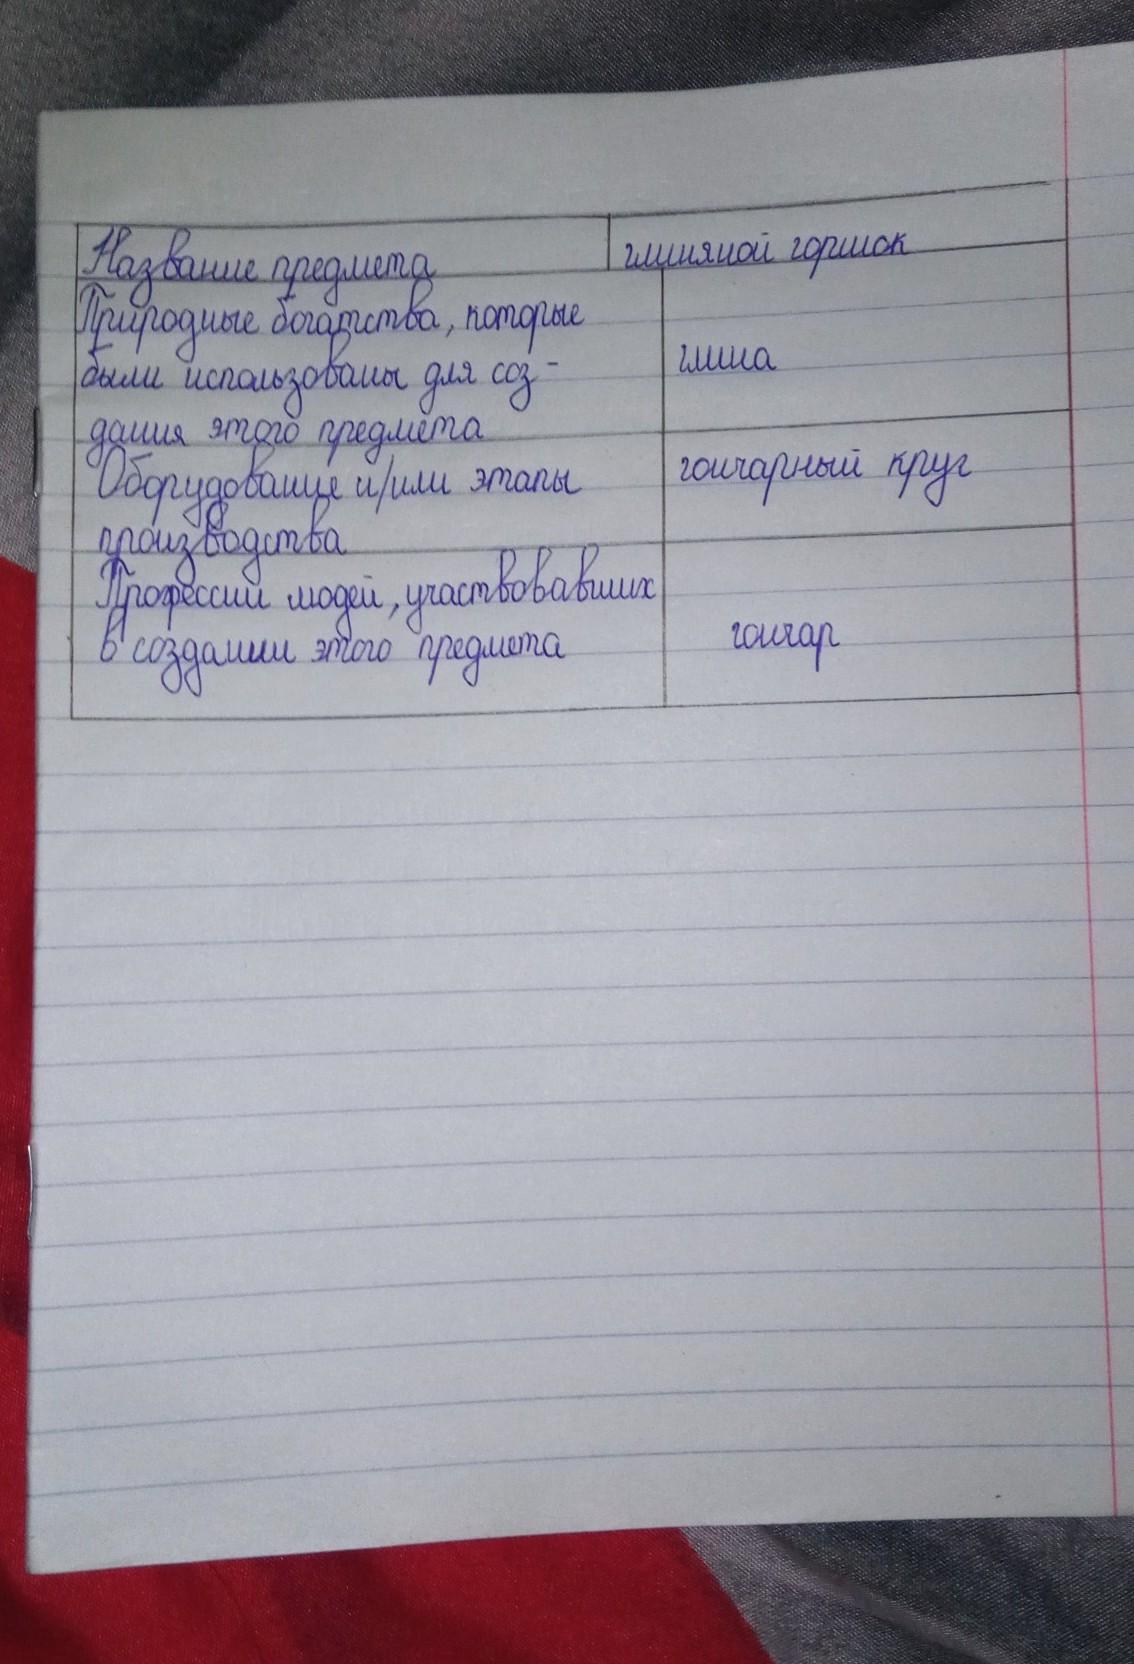 Название предмета
глиняной горшок
Природные богатства, которые
были использованы для соз-
дания этого предмета
глина
Оборудование и/или этапы
производства
гончарный круг
Профессии людей, участвовавших
в создании этого предмета
гончар